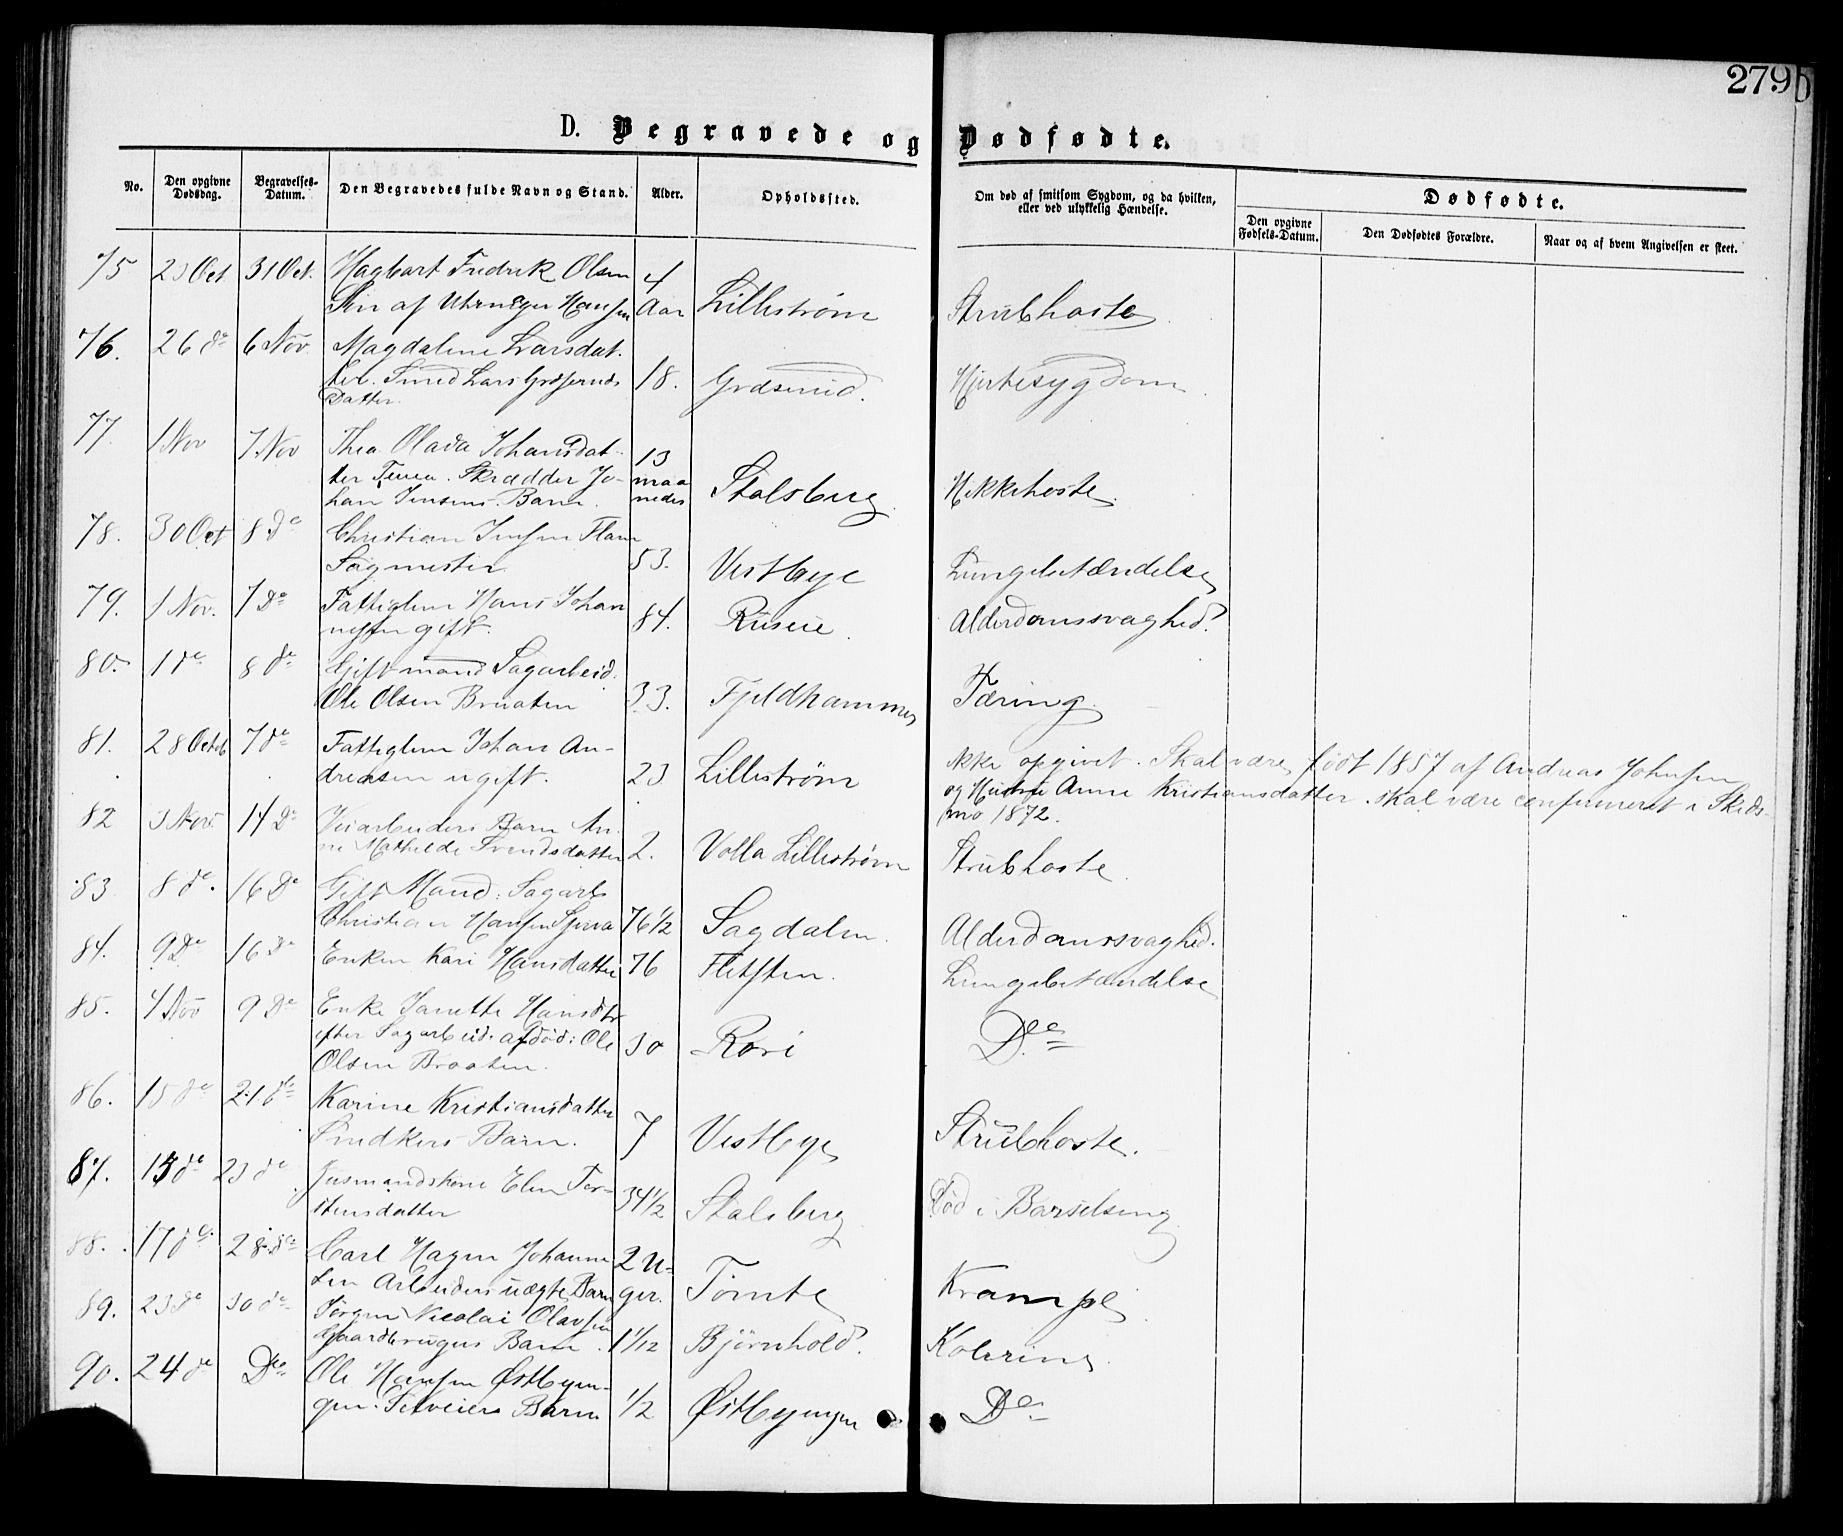 279 b
D. Begravede og Dødfødte.
No. Den opgivne Dødsdag. Begravelses-Datum. Den Begravedes fulde Navn og Stand. Alder. Opholdssted. Om død af smitsom Sygdom, og da hvilken, eller ved ulykkelig Hændelse. Dødfødte.
Den opgivne Fødsels-Datum. Den Dødfødtes Forældre. Naar og af hvem Angivelsen er skeet.
75 Oct 31 Oct. Hagbart Fredrik Olsen 4
Søn af Hansen Aar Lillestrøm Strubhoste
76. 26 de 6 Nov. Magdalene Larsdat-
ter. Lars 18. Græsrud. Hjertesygdom
Datter.
77. 1 Nov 7 Nov Thea Olava Johansdat- 13
ter Skrædder Jo- maa
han Jensens Barn. neder Stalsberg Kikhoste.
78. 30 Oct 8 De Christian Jensen
Sagmester 53. Vestbye Lungebetændelse
79. 1 Nov. 7 De Fattiglem Hans Johan
nesen gift. 84. Alderdomssvaghed.
80. 1 de 8 de Gift mand Sagarbeid.
Ole Olsen Braaten 33. Fjeldhammer Tæring.
81. 28 Octob 7 de Fattiglem Johan An-
dreasen ugift. 23 Lillestrøm Ikke opgivet. Skal være født 1857 af Andreas Johnsen
og Hustru Anne Kristiansdatter. skal være confirmeret i Skeds-
mo 1872.
82 3 Nov. 14 De Barn An-
ne Mathilde Svendsdatter 2. Volla Lillestrøm Strubhoste.
83 8 de. 16 De Gift Mand. Sagarb
Christian Hansen 76 1/2 Sagdalen. Alderdomssvaghed.
84. 9 De 16 De Enken Kari Hansdatter 76 Lungebetændelse
85. 4 Nov 9 De Enke Janette Hansdtr
efter Sagarbeid. afdød: Ole 30 De
Olsen Braaten.
86. 15 de 21 de Karine Kristiansdatter
Snedkers Barn. 7 Vestbye Strubhoste.
87. 15 de 23 de Husmandskone Elen Tor-
stensdatter 34 1/2 Stalsberg Død i Barselseng
88. 17 de 28 de Carl Hagen Johanne
sen Arbeiders uægte Barn 2 U-
ger. Tomte Krampe
89. 23 de 30 de Jørgen Nicolai Olavsen
Gaardbrugers Barn. 1 1/12 Bjørnhold. Kolerine
90. 24 de De Ole Hansen Østbyen-
gen. Barn 1/2 Østbyengen De